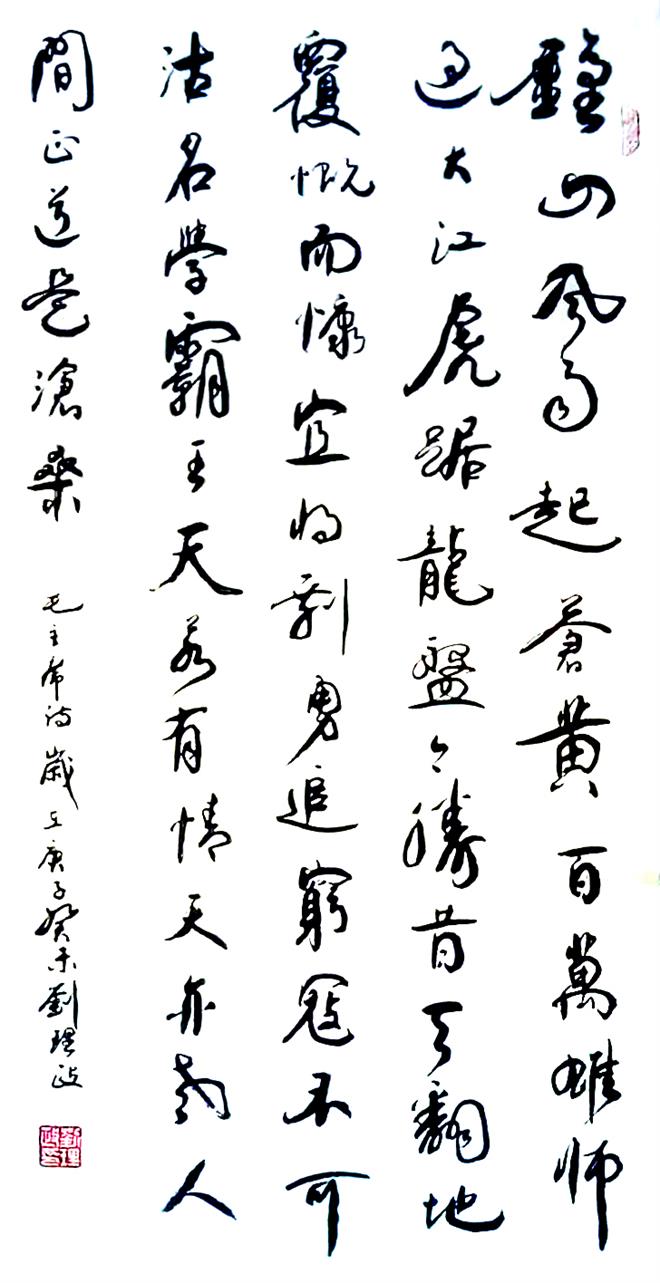 鍾山风雨起蒼黄百萬雄師
过大江虎踞龍盤今勝昔天翻地
覆慨而慷宜将剩勇追窮寇不可
沽名學霸王天若有情天亦老人
間正道是滄桑 毛主席詩歲在庚子癸未劉理政